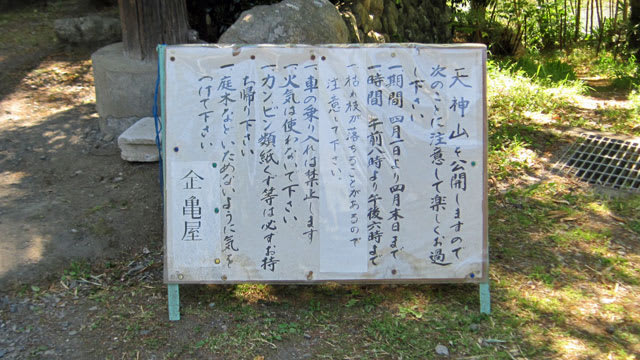 天神山を公開しますので
次のことに注意して楽しくお過
し下さい
一期間 四月一日より四月末日まで
一時間 午前八時より午後六時まで
一枯れ枝が落ちることがあるので
注意して下さい。
一車の乗り入れは禁止します
一火気は使わないで下さい
一カン、ビン類紙くず等は必ずお持
ち帰り下さい
一庭木などいためないように気を
つけて下さい。
企亀屋